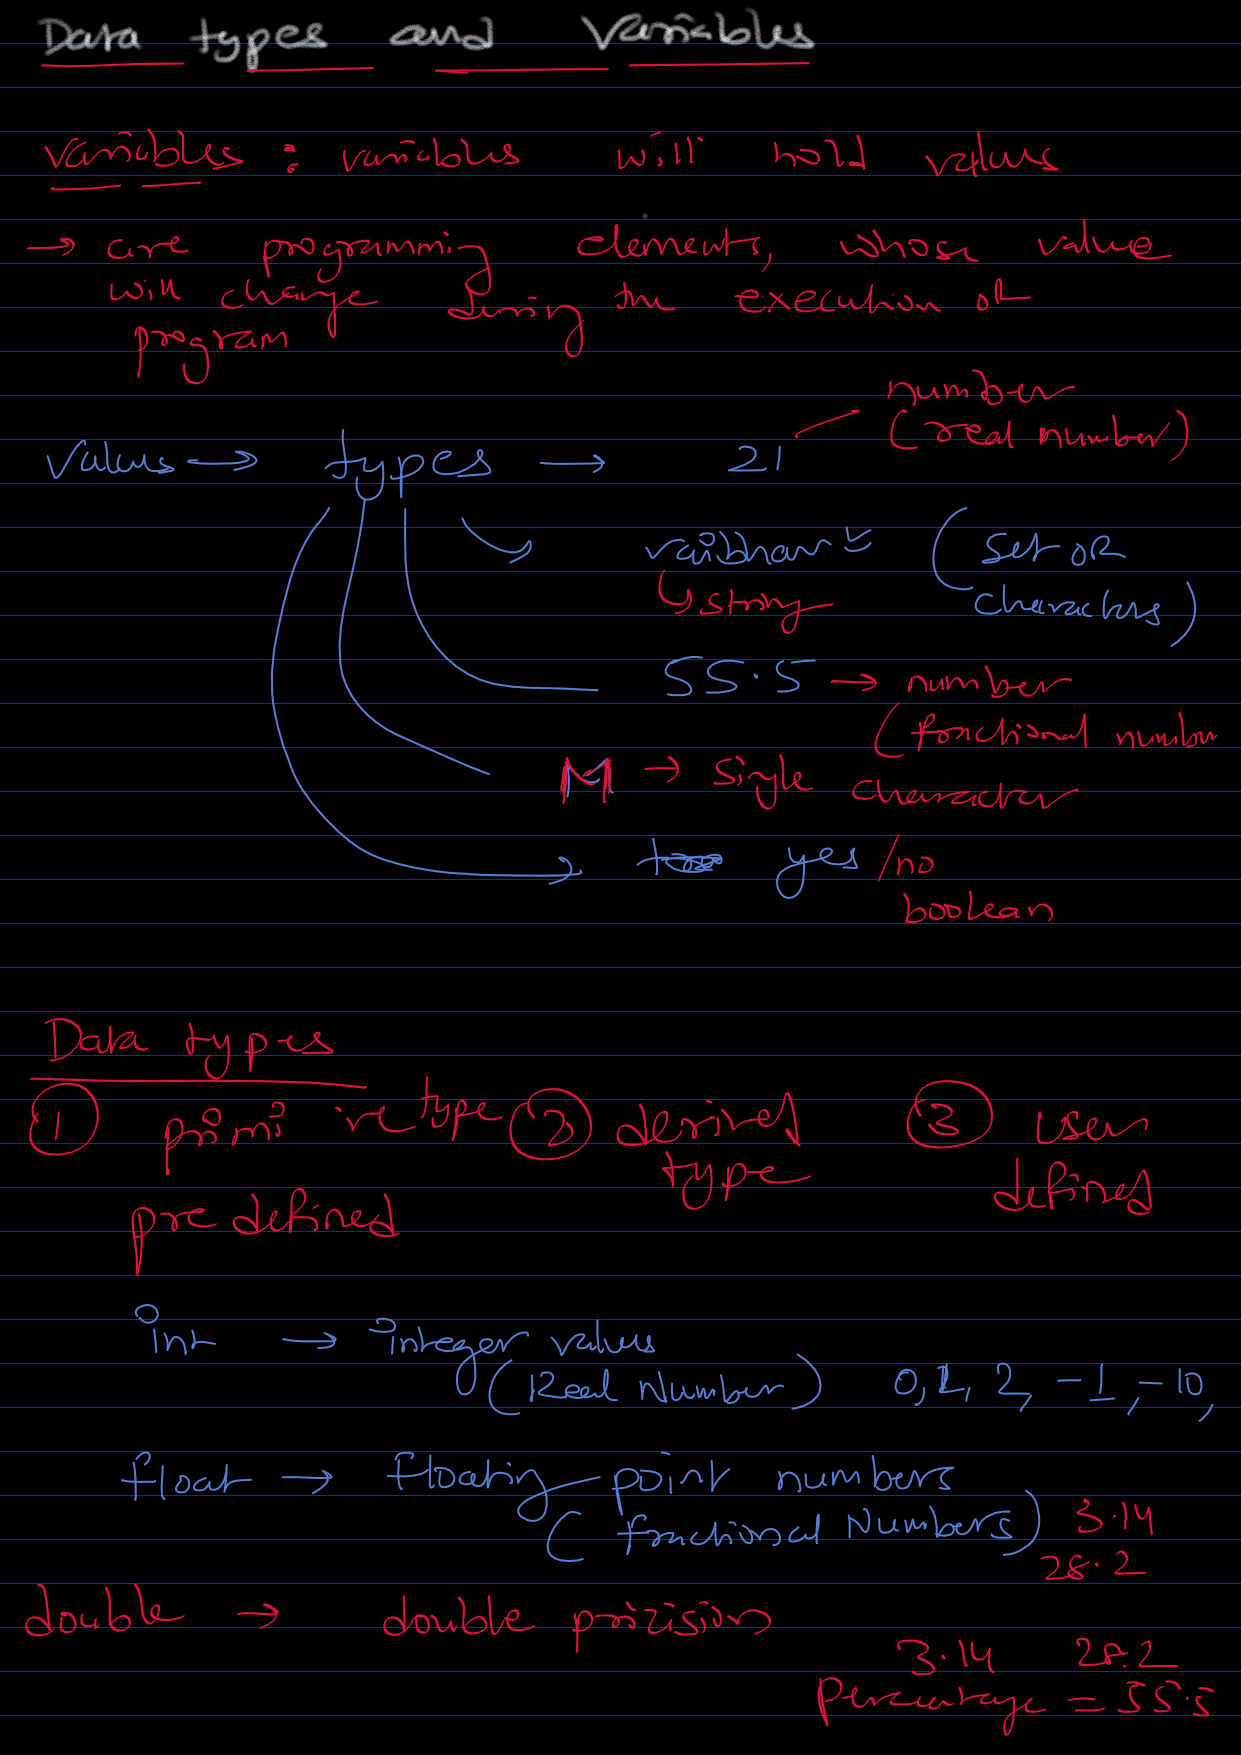 Data types and Variables
Variables : variables will hold values
→ are programming elements, whose value
will change during the execution of
program
number
(real number)
Values → types → 21
vaibhav (set of
string characters)
55.5 → number
(fractional number
M → single character
yes /no
boolean
Data types
① primi ive type ② derived type ③ user defined
pre defined
int → integer values
(Real Number) 0, 1, 2, -1, -10,
float → floating point numbers
(fractional Numbers) 3.14
28.2
double → double precision
3.14 28.2
Percentage = 55.5